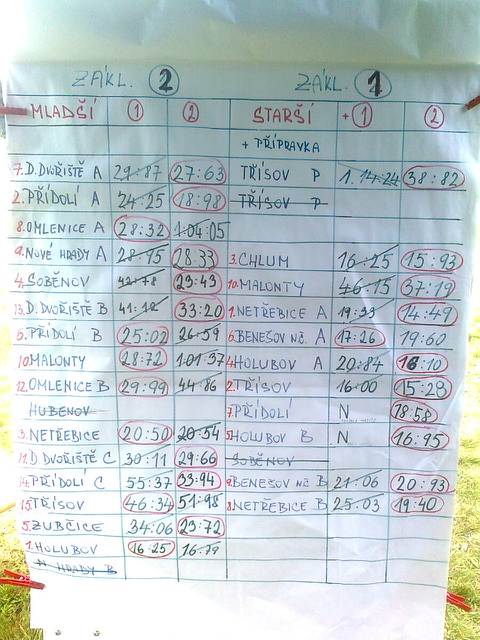 ZÁKL. 2 ZÁKL. 1
MLADŠÍ 1 2 STARŠÍ +1 2
+ PŘÍPRAVKA
7. D.DVOŘIŠTĚ A 29:87 27:63 TŘÍSOV P 1.14:24 38:82
2. PŘÍDOLÍ A 24:25 18:98 TŘÍSOV P
8. OMLENICE A 28:32 1:04:05
9. NOVÉ HRADY A 28:95 28:33 3. CHLUM 16:25 15:93
4. SOBĚNOV 42:78 23:43 10. MALONTY 46:15 37:19
13. D.DVOŘIŠTĚ B 41:12 33:20 1. NETŘEBICE A 19:33 14:49
6. PŘÍDOLÍ B 25:02 26:59 6. BENEŠOV NČ. A 17:26 19:60
10. MALONTY 28:72 1:01:37 4. HOLUBOV A 20:84 16:10
12. OMLENICE B 29:99 44:86 2. TŘÍSOV 16:00 15:28
HUBENOV 7. PŘÍDOLÍ N 18:58
3. NETŘEBICE 20:50 20:54 5. HOLUBOV B N 16:95
11. D.DVOŘIŠTĚ C 30:11 29:66 SOBĚNOV
14. PŘÍDOLÍ C 55:37 33:94 9. BENEŠOV NČ B 21:06 20:93
15. TŘÍSOV 46:34 51:98 8. NETŘEBICE B 25:03 19:40
5. ZUBČICE 34:06 23:72
1. HOLUBOV 16:25 16:79
N HRADY B